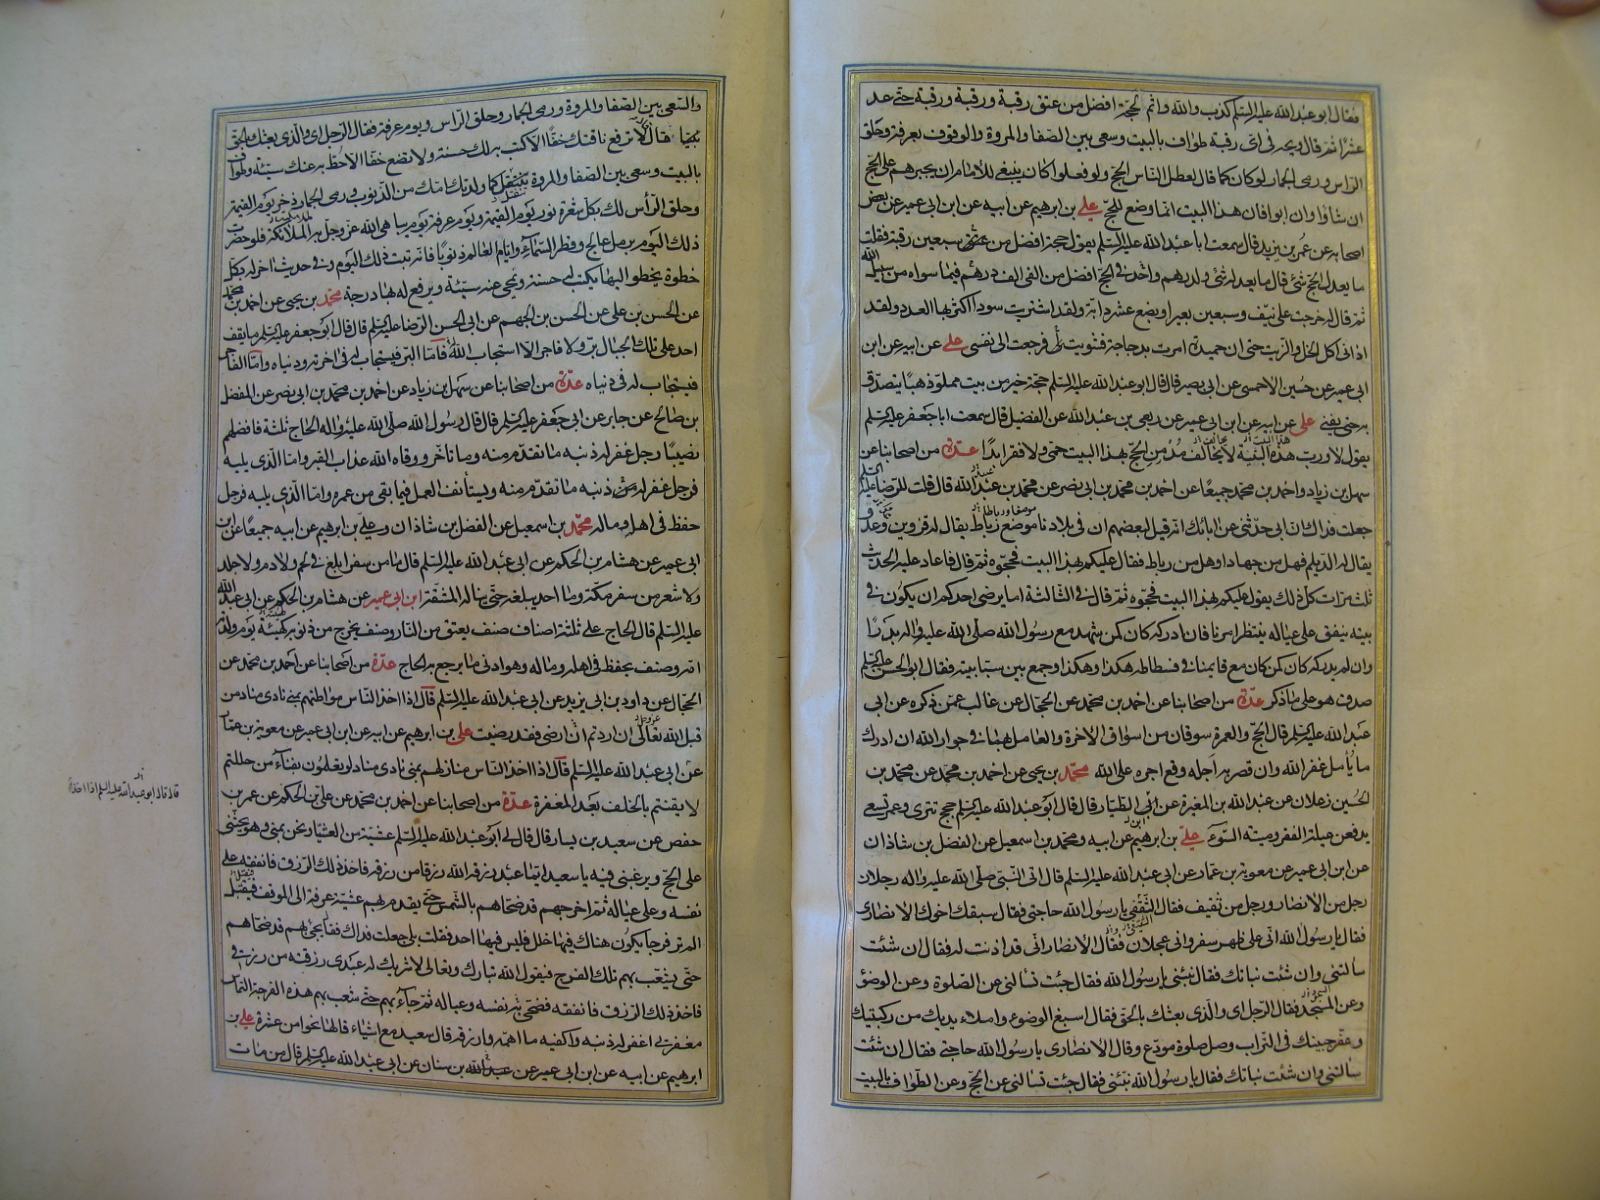 فقال ابو عبد الله عليه السلم كذب والله واثم لحجة افضل من عتق رقبة ورقبة ورقبة حتى عد
عشرا ثم قال ويحه فى اى رقبة طواف بالبيت وسعى بين الصفا والمروة والوقوف بعرفة وحلق
الراس ورمى الجمار لو كان كما قال لعطل الناس الحج ولو فعلوا كان ينبغى للامام ان يجبرهم على الحج
ان شاؤا وان ابوا فان هذا البيت انما وضع للحج على بن ابرهيم عن ابيه عن ابن ابى عمير عن بعض
اصحابه عن عمر بن يزيد قال سمعت ابا عبد الله عليه السلم يقول حجة افضل من عتق سبعين رقبة فقلت
ما يعدل الحج شئ قال ما يعدله شئ ولدرهم واحد فى الحج افضل من الفى الف درهم فيما سواه من سبيل الله
ثم قال له خرجت على نيف وسبعين بعيرا وبضع عشر دابة ولقد اشتريت سودا اكثر بها العدد ولقد
اذانى اكل الخل والزيت حتى ان حميدة امرت بدجاجة فشويت لى فرجعت الى نفسى على عن ابيه عن ابن
ابى عمير عن حسين الاحمسى عن ابى بصير قال قال ابو عبد الله عليه السلم حجة خير من بيت مملو ذهبا يتصدق
به حتى يفنى على عن ابيه عن ابن ابى عمير عن ربعى بن عبد الله عن الفضيل قال سمعت ابا جعفر عليه السلم
يقول لا ورب هذه البنية لا يخالف مدمن الحج بهذا البيت حمى ولا فقر ابدا عدة من اصحابنا عن
سهل بن زياد واحمد بن محمد جميعا عن احمد بن محمد بن ابى نصر عن محمد بن عبد الله قال قلت للرضا عليه السلم
جعلت فداك ان ابى حدثنى عن ابائك انه قيل لبعضهم ان فى بلادنا موضع رباط يقال له قزوين وعدو
يقال له الديلم فهل من جهاد او هل من رباط فقال عليكم بهذا البيت فحجوه ثم قال فاعاد عليه الحديث
ثلث مرات كل ذلك يقول عليكم بهذا البيت فحجوه ثم قال فى الثالثة اما يرضى احدكم ان يكون فى
بيته ينفق على عياله ينتظر امرنا فان ادركه كان كمن شهد مع رسول الله صلى الله عليه واله بدرا
وان لم يدركه كان كمن كان مع قايمنا فى فسطاطه هكذا وهكذا وجمع بين سبابتيه فقال ابو الحسن عليه السلم
صدق هو على ما ذكر عدة من اصحابنا عن احمد بن محمد عن الحجال عن غالب عمن ذكره عن ابى
عبد الله عليه السلم قال الحج والعمرة سوقان من اسواق الاخرة والعامل بهما فى جوار الله ان ادرك
ما يأمل غفر الله وان قصر به اجله وقع اجره على الله محمد بن يحيى عن احمد بن محمد عن محمد بن
الحسين زعلان عن عبد الله بن المغيرة عن ابى الطيار قال قال ابو عبد الله عليه السلم حجج تترى وعمر تسعى
يدفعن عيلة الفقر وميتة السوء على بن ابرهيم عن ابيه ومحمد بن اسمعيل عن الفضل بن شاذان
عن ابن ابى عمير عن معوية بن عمار عن ابى عبد الله عليه السلم قال اتى النبى صلى الله عليه واله رجلان
رجل من الانصار ورجل من ثقيف فقال الثقفى يا رسول الله حاجتى فقال سبقك اخوك الانصارى
فقال يا رسول الله انى على ظهر سفر وانى عجلان فقال الانصارى انى قد اذنت له فقال ان شئت
سالتنى وان شئت نباتك فقال نبئنى يا رسول الله فقال جئت تسالنى عن الصلوة وعن الوضؤ
وعن المسجد فقال الرجل اى والذى بعثك بالحق فقال اسبغ الوضوء واملاء يديك من ركبتيك
وعفر جبينك فى التراب وصل صلوة مودع وقال الانصارى يا رسول الله حاجتى فقال ان شئت
سالتنى وان شئت نباتك فقال يا رسول الله نبئنى فقال جئت تسالنى عن الحج وعن الطواف بالبيت
والسعى بين الصفا والمروة ورمى الجمار وحلق الراس ويوم عرفة فقال الرجل اى والذى بعثك بالحق
نبيا قال لا ترفع ناقتك خفا الا كتب به لك حسنة ولا تضع خفا الا حط به عنك سيئة وطواف
بالبيت وسعى بين الصفا والمروة ينقيك كما ولدتك امك من الذنوب ورمى الجمار ذخر يوم القيمة
وحلق الرأس لك بكل شعرة نور يوم القيمة ويوم عرفة يوم يباهى الله عز وجل به الملائكة فلو حضرت
ذلك اليوم برمل عالج وقطر السماء وايام العالم ذنوبا فانه تبت ذلك اليوم وفى حديث اخر له بكل
خطوة يخطو اليها يكتب له حسنة ويمحى عنه سيئة ويرفع له بها درجة محمد بن يحيى عن احمد بن محمد
عن الحسن بن على عن الحسن بن الجهم عن ابى الحسن الرضا عليه السلم قال قال ابو جعفر عليه السلم ما يقف
احد على تلك الجبال بر ولا فاجر الا استجاب الله فاما البر فيستجاب له فى اخرته ودنياه واما الفاجر
فيستجاب له فى دنياه عدة من اصحابنا عن سهل بن زياد عن احمد بن محمد بن ابى نصر عن المفضل
بن صالح عن جابر عن ابى جعفر عليه السلم قال قال رسول الله صلى الله عليه واله الحاج ثلثة فافضلهم
نصيبا رجل غفر له ذنبه ما تقدم منه وما تاخر ووقاه الله عذاب القبر واما الذى يليه
فرجل غفر له ذنبه ما تقدم منه ويستانف العمل فيما بقى من عمره واما الذى يليه فرجل
حفظ فى اهله وماله محمد بن اسمعيل عن الفضل بن شاذان وعلى بن ابرهيم عن ابيه جميعا عن ابن
ابى عمير عن هشام بن الحكم عن ابى عبد الله عليه السلم قال ما من سفر ابلغ فى لحم ولا دم ولا جلد
ولا شعر من سفر مكة وما احد يبلغه حتى يناله المشقة ابن ابى عمير عن هشام بن الحكم عن ابى عبد الله
عليه السلم قال الحاج على ثلثة اصناف صنف يعتق من النار وصنف يخرج من ذنوبه كهيئة يوم ولدته
امه وصنف يحفظ فى اهله وماله وهو ادنى ما يرجع به الحاج عدة من اصحابنا عن احمد بن محمد عن
الحجال عن داود بن ابى يزيد عن ابى عبد الله عليه السلم قال اذا اخذ الناس مواطنهم بمنى نادى مناد من
قبل الله تعالى ان اردتم ان ارضى فقد رضيت على بن ابرهيم عن ابيه عن ابن ابى عمير عن معوية بن عمار
عن ابى عبد الله عليه السلم قال اذا اخذ الناس منازلهم بمنى نادى مناد لو يعلمون بفناء من حللتم
لايقنتم بالخلف بعد المغفرة عدة من اصحابنا عن احمد بن محمد عن على بن الحكم عن عمر بن
حفص عن سعيد بن يسار قال قال لى ابو عبد الله عليه السلم عشية من العشيات ونحن بمنى وهو يحثنى
على الحج ويرغبنى فيه يا سعيد ايما عبد رزقه الله رزقا من رزقه فاخذ ذلك الرزق فانفقه على
نفسه وعلى عياله ثم اخرجهم قد ضحاهم بالشمس حتى يقدم بهم عشية عرفة الى الموقف فيقيل
الم تر فرجا يكون هناك فيها خلل فليس فيها احد فقلت بلى جعلت فداك فقال يجئ بهم قد ضحاهم
حتى يشعب بهم تلك الفرج فيقول الله تبارك وتعالى لا شريك له عبدى رزقته من رزقى
فاخذ ذلك الرزق فانفقه فضحى به نفسه وعياله ثم جاء بهم حتى شعب بهم هذه الفرجة التماس
مغفرتى اغفر له ذنبه واكفيه ما اهمه وارزقه قال سعيد مع اشياء قالها نحوا من عشرة على بن
ابرهيم عن ابيه عن ابن ابى عمير عن عبد الله بن سنان عن ابى عبد الله عليه السلم قال من مات
قال قال ابو عبد الله عليه السلم اذا اخذ